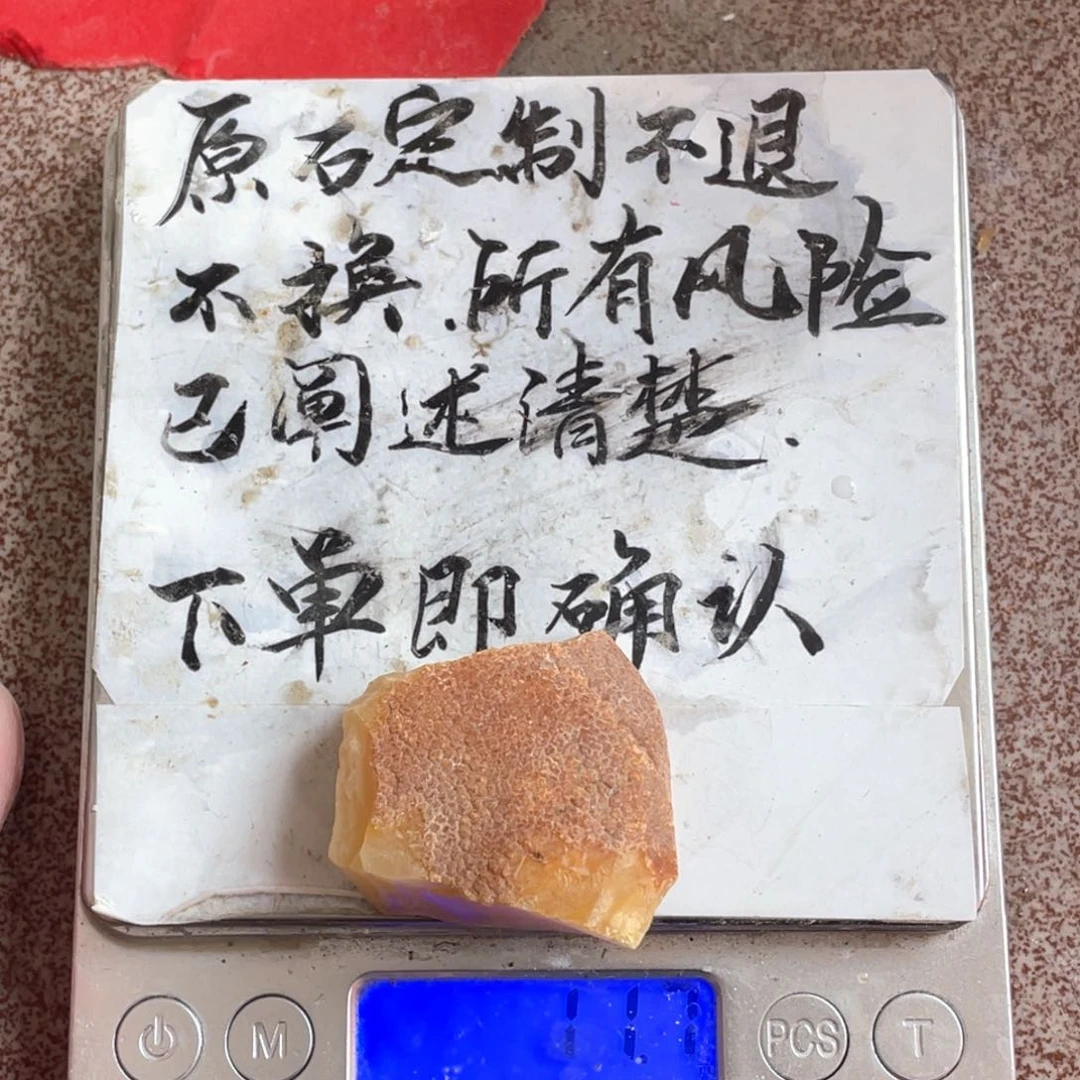 原石定制不退
不换.所有风险
已阐述清楚.
下单即确认
M
PCS
T